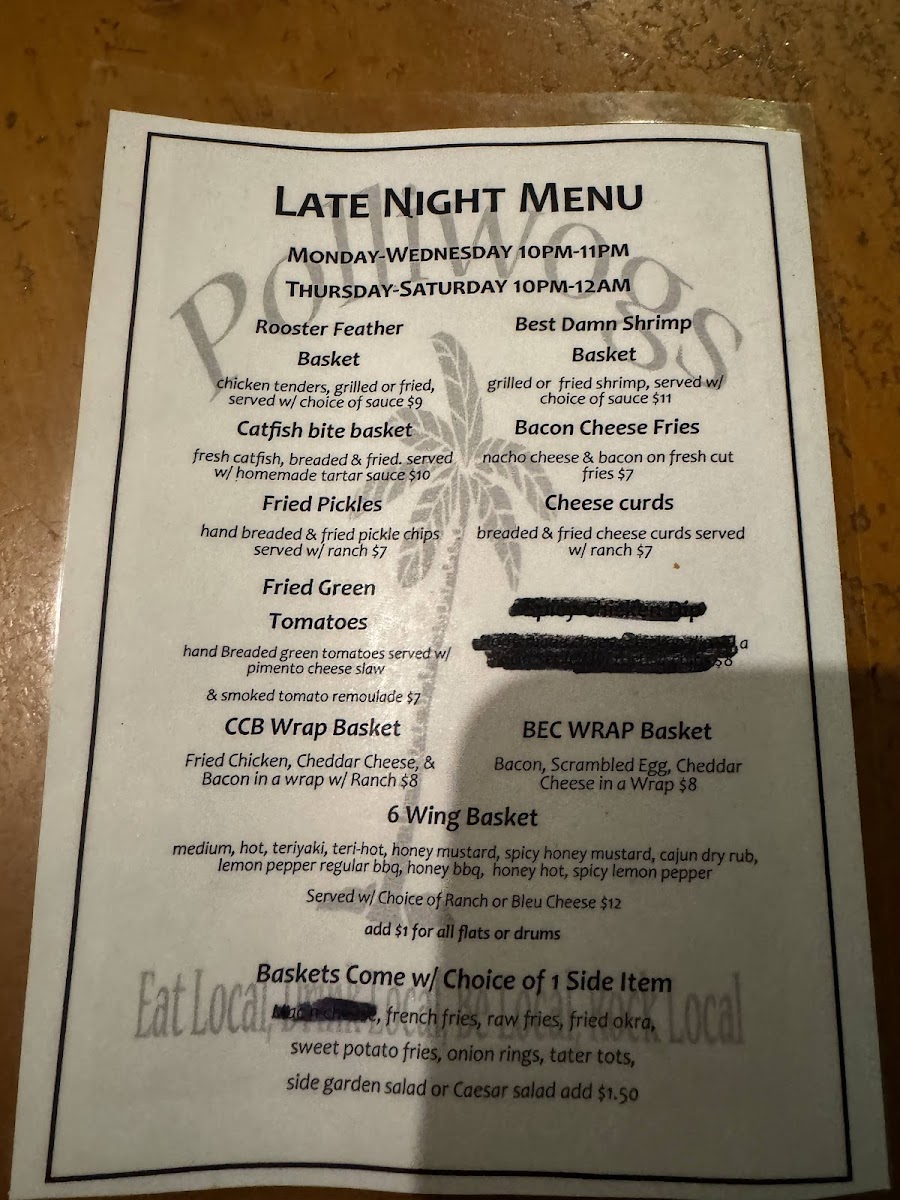 Polliwogs
LATE NIGHT MENU
MONDAY-WEDNESDAY 10PM-11PM
THURSDAY-SATURDAY 10PM-12AM
Rooster Feather
Basket
chicken tenders, grilled or fried,
served w/ choice of sauce $9
Best Damn Shrimp
Basket
grilled or fried shrimp, served w/
choice of sauce $11
Catfish bite basket
fresh catfish, breaded & fried. served
w/ homemade tartar sauce $10
Bacon Cheese Fries
nacho cheese & bacon on fresh cut
fries $7
Fried Pickles
hand breaded & fried pickle chips
served w/ ranch $7
Cheese curds
breaded & fried cheese curds served
w/ ranch $7
Fried Green
Tomatoes
hand Breaded green tomatoes served w/
pimento cheese slaw
& smoked tomato remoulade $7
Spicy Chicken Dip
$8
CCB Wrap Basket
Fried Chicken, Cheddar Cheese, &
Bacon in a wrap w/ Ranch $8
BEC WRAP Basket
Bacon, Scrambled Egg, Cheddar
Cheese in a Wrap $8
6 Wing Basket
medium, hot, teriyaki, teri-hot, honey mustard, spicy honey mustard, cajun dry rub,
lemon pepper regular bbq, honey bbq, honey hot, spicy lemon pepper
Served w/ Choice of Ranch or Bleu Cheese $12
add $1 for all flats or drums
Baskets Come w/ Choice of 1 Side Item
Mac n cheese, french fries, raw fries, fried okra,
sweet potato fries, onion rings, tater tots,
side garden salad or Caesar salad add $1.50
Eat Local, Drink Local, Be Local, Rock Local